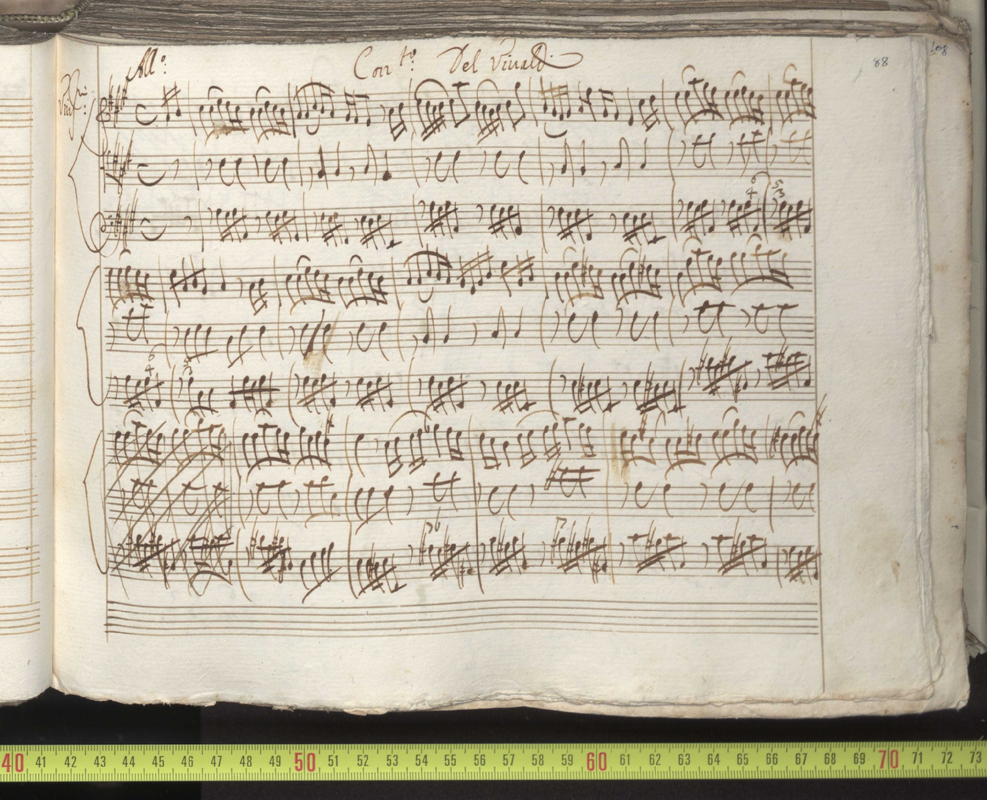 All:º Con.to Del Viuald: 88
6
4
5
3
6
4
5
3
40 41 42 43 44 45 46 47 48 49 50 51 52 53 54 55 56 57 58 59 60 61 62 63 64 65 66 67 68 69 70 71 72 73